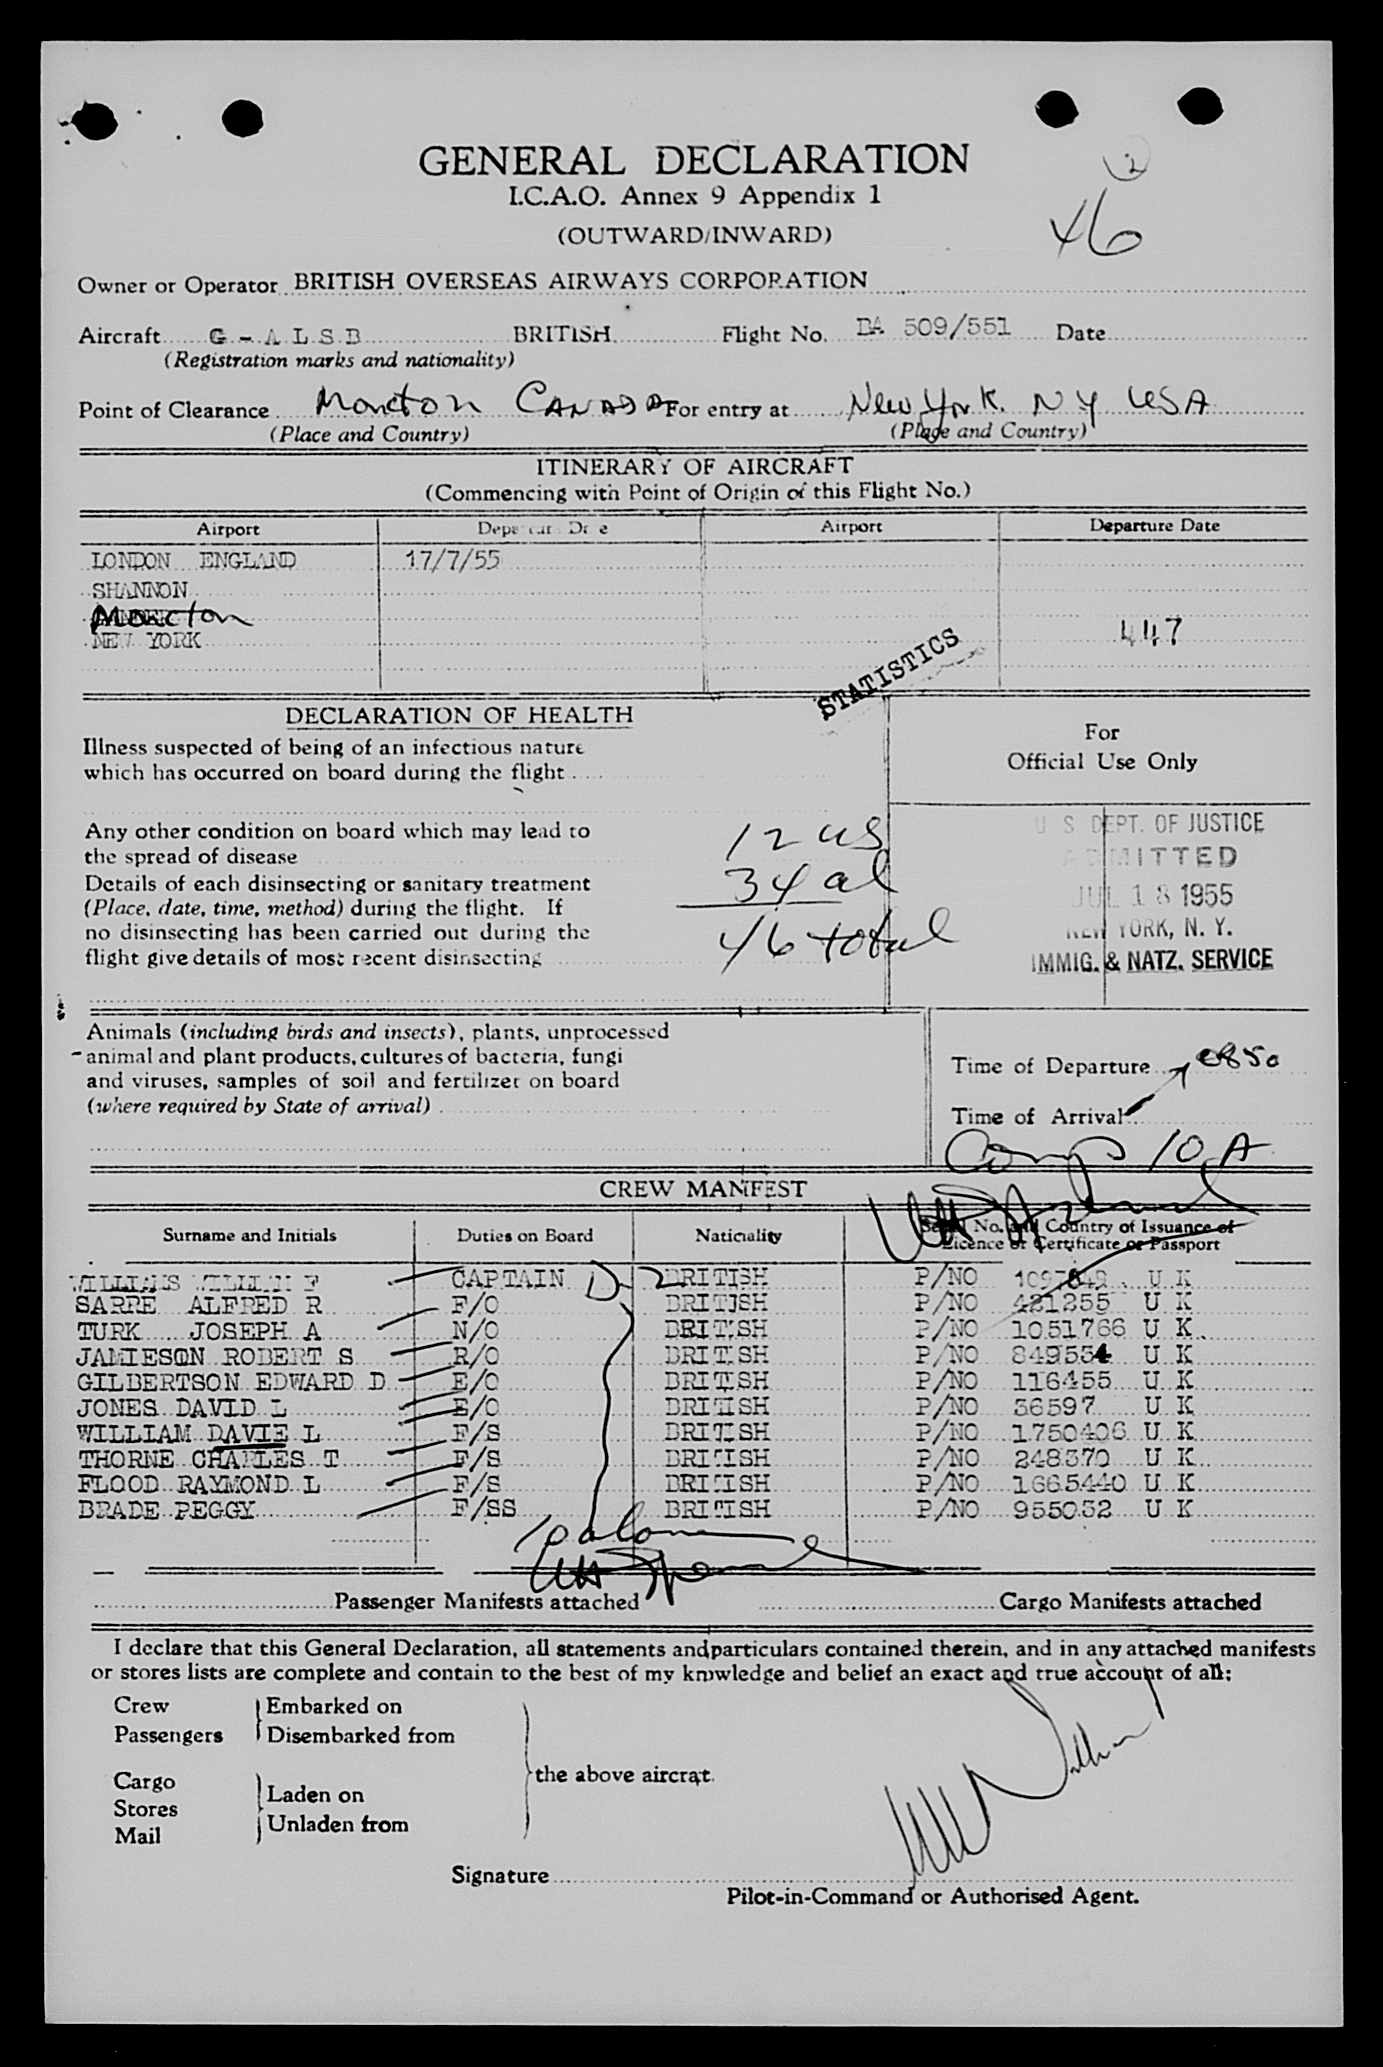 GENERAL DECLARATION
2
I.C.A.O. Annex 9 Appendix 1
46
(OUTWARD/INWARD)
Owner or Operator BRITISH OVERSEAS AIRWAYS CORPORATION
Aircraft G - A L S B BRITISH Flight No. BA 509/551 Date
(Registration marks and nationality)
Point of Clearance Moncton CANADA For entry at New York. NY USA
(Place and Country) (Place and Country)
ITINERARY OF AIRCRAFT
(Commencing with Point of Origin of this Flight No.)
Airport Departure Date Airport Departure Date
LONDON ENGLAND 17/7/55
SHANNON
Moncton
NEW YORK 447
STATISTICS
DECLARATION OF HEALTH
Illness suspected of being of an infectious nature
which has occurred on board during the flight
For
Official Use Only
Any other condition on board which may lead to
the spread of disease
Details of each disinsecting or sanitary treatment
(Place, date, time, method) during the flight. If
no disinsecting has been carried out during the
flight give details of most recent disinsecting
12 US
34 al
46 total
U S DEPT. OF JUSTICE
ADMITTED
JUL 18 1955
NEW YORK, N. Y.
IMMIG. & NATZ. SERVICE
Animals (including birds and insects), plants, unprocessed
animal and plant products, cultures of bacteria, fungi
and viruses, samples of soil and fertilizer on board
(where required by State of arrival)
Time of Departure 0850
Time of Arrival
Comp 10 A
CREW MANIFEST
Surname and Initials Duties on Board Nationality Serial No. and Country of Issuance of
Licence or Certificate or Passport
WILLIAMS WILLIAM F CAPTAIN D-2 BRITISH P/NO 1097849 U K
SARRE ALFRED R F/O BRITISH P/NO 421255 U K
TURK JOSEPH A N/O BRITISH P/NO 1051766 U K
JAMIESON ROBERT S R/O BRITISH P/NO 849554 U K
GILBERTSON EDWARD D E/O BRITISH P/NO 116455 U K
JONES DAVID L E/O BRITISH P/NO 36597 U K
WILLIAM DAVIE L F/S BRITISH P/NO 1750406 U K
THORNE CHARLES T F/S BRITISH P/NO 248370 U K
FLOOD RAYMOND L F/S BRITISH P/NO 1665440 U K
BRADE PEGGY F/SS BRITISH P/NO 955032 U K
Passenger Manifests attached Cargo Manifests attached
I declare that this General Declaration, all statements and particulars contained therein, and in any attached manifests
or stores lists are complete and contain to the best of my knowledge and belief an exact and true account of all:
Crew Embarked on
Passengers Disembarked from
the above aircraft.
Cargo
Stores Laden on
Mail Unladen from
Signature
Pilot-in-Command or Authorised Agent.